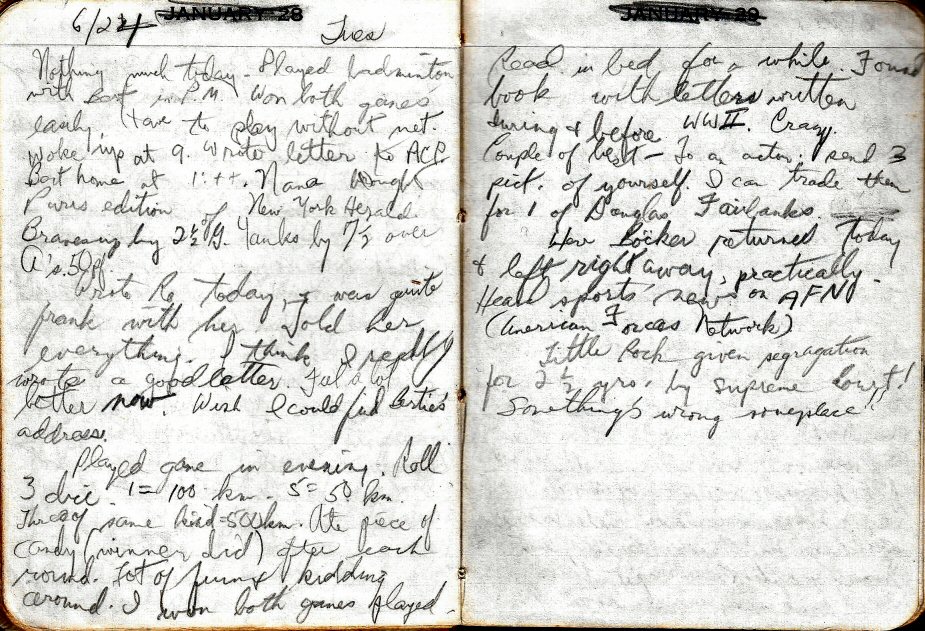 JANUARY 28
6/24 Tues
Nothing much today. Played badminton
with Bert in P.M. Won both games
easily. Have to play without net.
Woke up at 9. Wrote letter to ACP.
Bert home at 1:++. Nana bought
Paris edition of New York Herald.
Braves up by 2½ G. Yanks by 7½ over
A's.
Wrote Ro today, & was quite
frank with her. Told her
everything. I think I really
wrote a good letter. Feel a lot
better now. Wish I could find
address.
Played game in evening. Roll
3 dice. 1 = 100 km. 5 = 50 km.
Three of same kind = 500 km. Ate piece of
candy (winner did) after each
round. Lot of fun & kidding
around. I won both games played.
JANUARY 29
Read in bed for a while. Found
book with letters written
during & before WWII. Crazy.
Couple of best — To an actor: send 3
pict. of yourself. I can trade them
for 1 of Douglas Fairbanks.
Herr Böcker returned today
& left right away, practically.
Heard sports news on AFN
(American Forces Network)
Little Rock given segragation
for 2½ yrs. by Supreme Court!
Something's wrong someplace!!